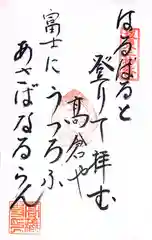 はるばると
登りて拝む
高倉や
富士にうつろふ
あさばなるらん